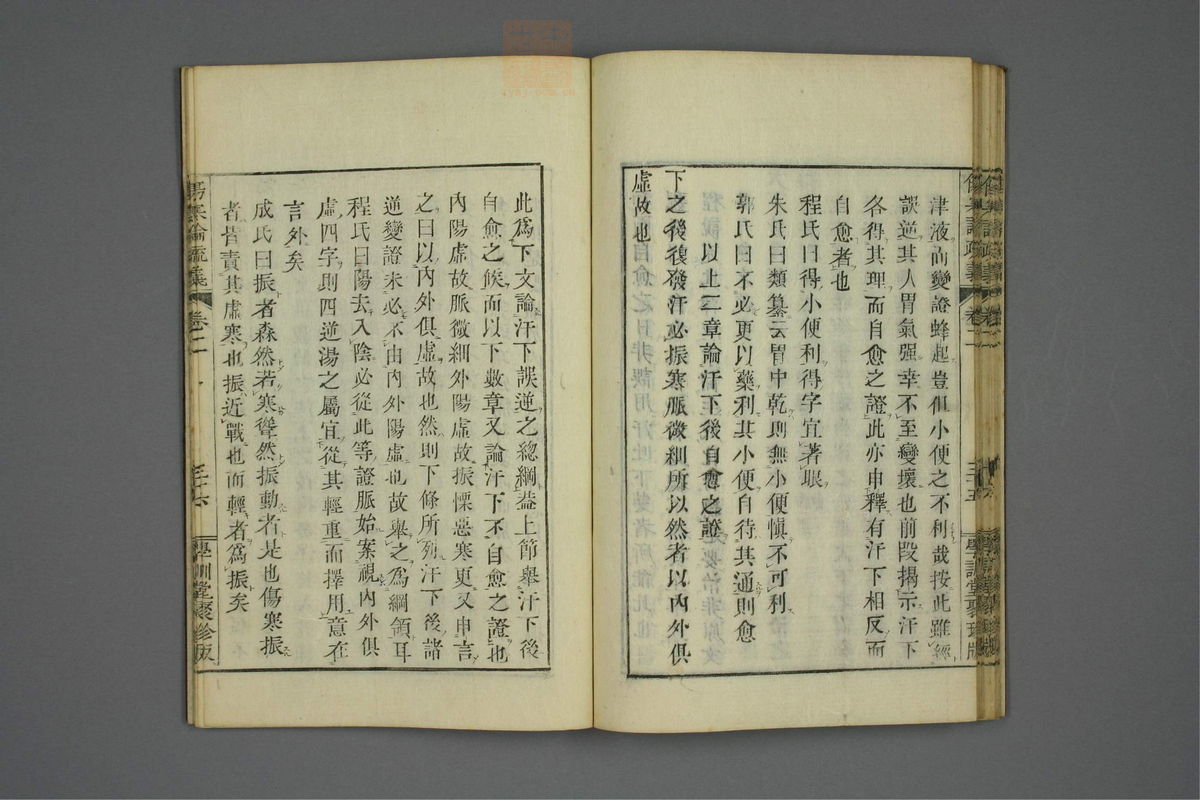 津液而變證蜂起豈但小便之不利哉按此雖經
誤逆其人胃氣强幸不至變壞也前段揭示汗下
各得其理而自愈之證此亦申釋有汗下相反而
自愈者也
程氏曰得小便利得字宜著眼
朱氏曰類纂云胃中乾則無小便愼不可利
郭氏曰不必更以藥利其小便自待其通則愈
以上二章論汗下後自愈之證
下之後復發汗必振寒脈微細所以然者以內外俱
虛故也
此爲下文論汗下誤逆之總綱葢上節舉汗下後
自愈之候而以下數章又論汗下不自愈之證也
內陽虛故脈微細外陽虛故振慄惡寒更又申言
之曰以內外俱虛故也然則下條所列汗下後諸
逆變證未必不由內外陽虛也故舉之爲綱領耳
程氏曰陽去入陰必從此等證脈始案視內外俱
虛四字則四逆湯之屬宜從其輕重而擇用意在
言外矣
成氏曰振者森然若寒聳然振動者是也傷寒振
者皆責其虛寒也振近戰也而輕者爲振矣
傷寒論疏義
卷二
三十六
學訓堂聚珍版